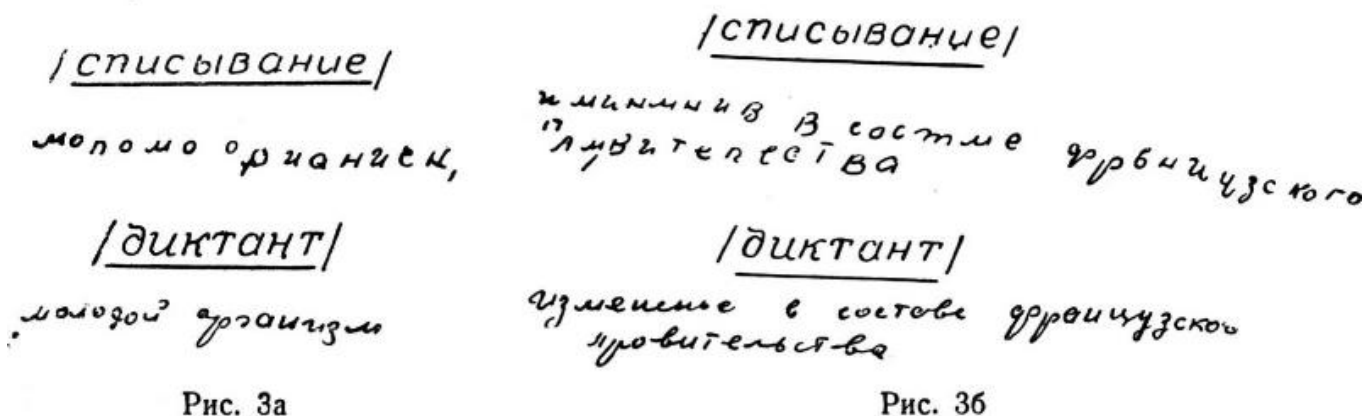 /списывание/
мопомо орианиск,
/диктант/
молодой организм
Рис. 3а
/списывание/
иминмнив в состме фрвницузского
правитепества
/диктант/
изменные в составе французской
правительства
Рис. 3б